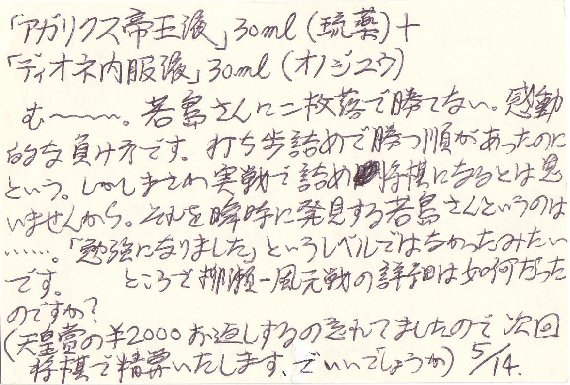 「アガリクス帝王液」30ml(琉薬)+
「ディオネ内服液」30ml(オノジュウ)
む〜〜〜。若島さんに二枚落で勝てない。感動
的な負け方です。打ち歩詰めで勝つ順があったのに
という。しかしまさか実戦で詰め将棋になるとは思
いませんから。それを瞬時に発見する若島さんというのは
……。「勉強になりました」というレベルではなかったみたい
です。 ところで柳瀬–風元戦の詳細は如何だった
のですか?
(天皇賞の¥2000お返しするの忘れてましたので次回
将棋で精算いたします、でいいでしょうか) 5/14.